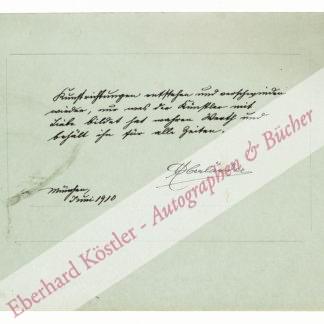 Kunstrichtungen entstehen und verschwinden
wieder, nur was der Künstler mit
Liebe bildet hat wahren Werth und
behält ihn für alle Zeiten.
München,
Juni 1910
Eberhard Köstler - Autographen & Bücher